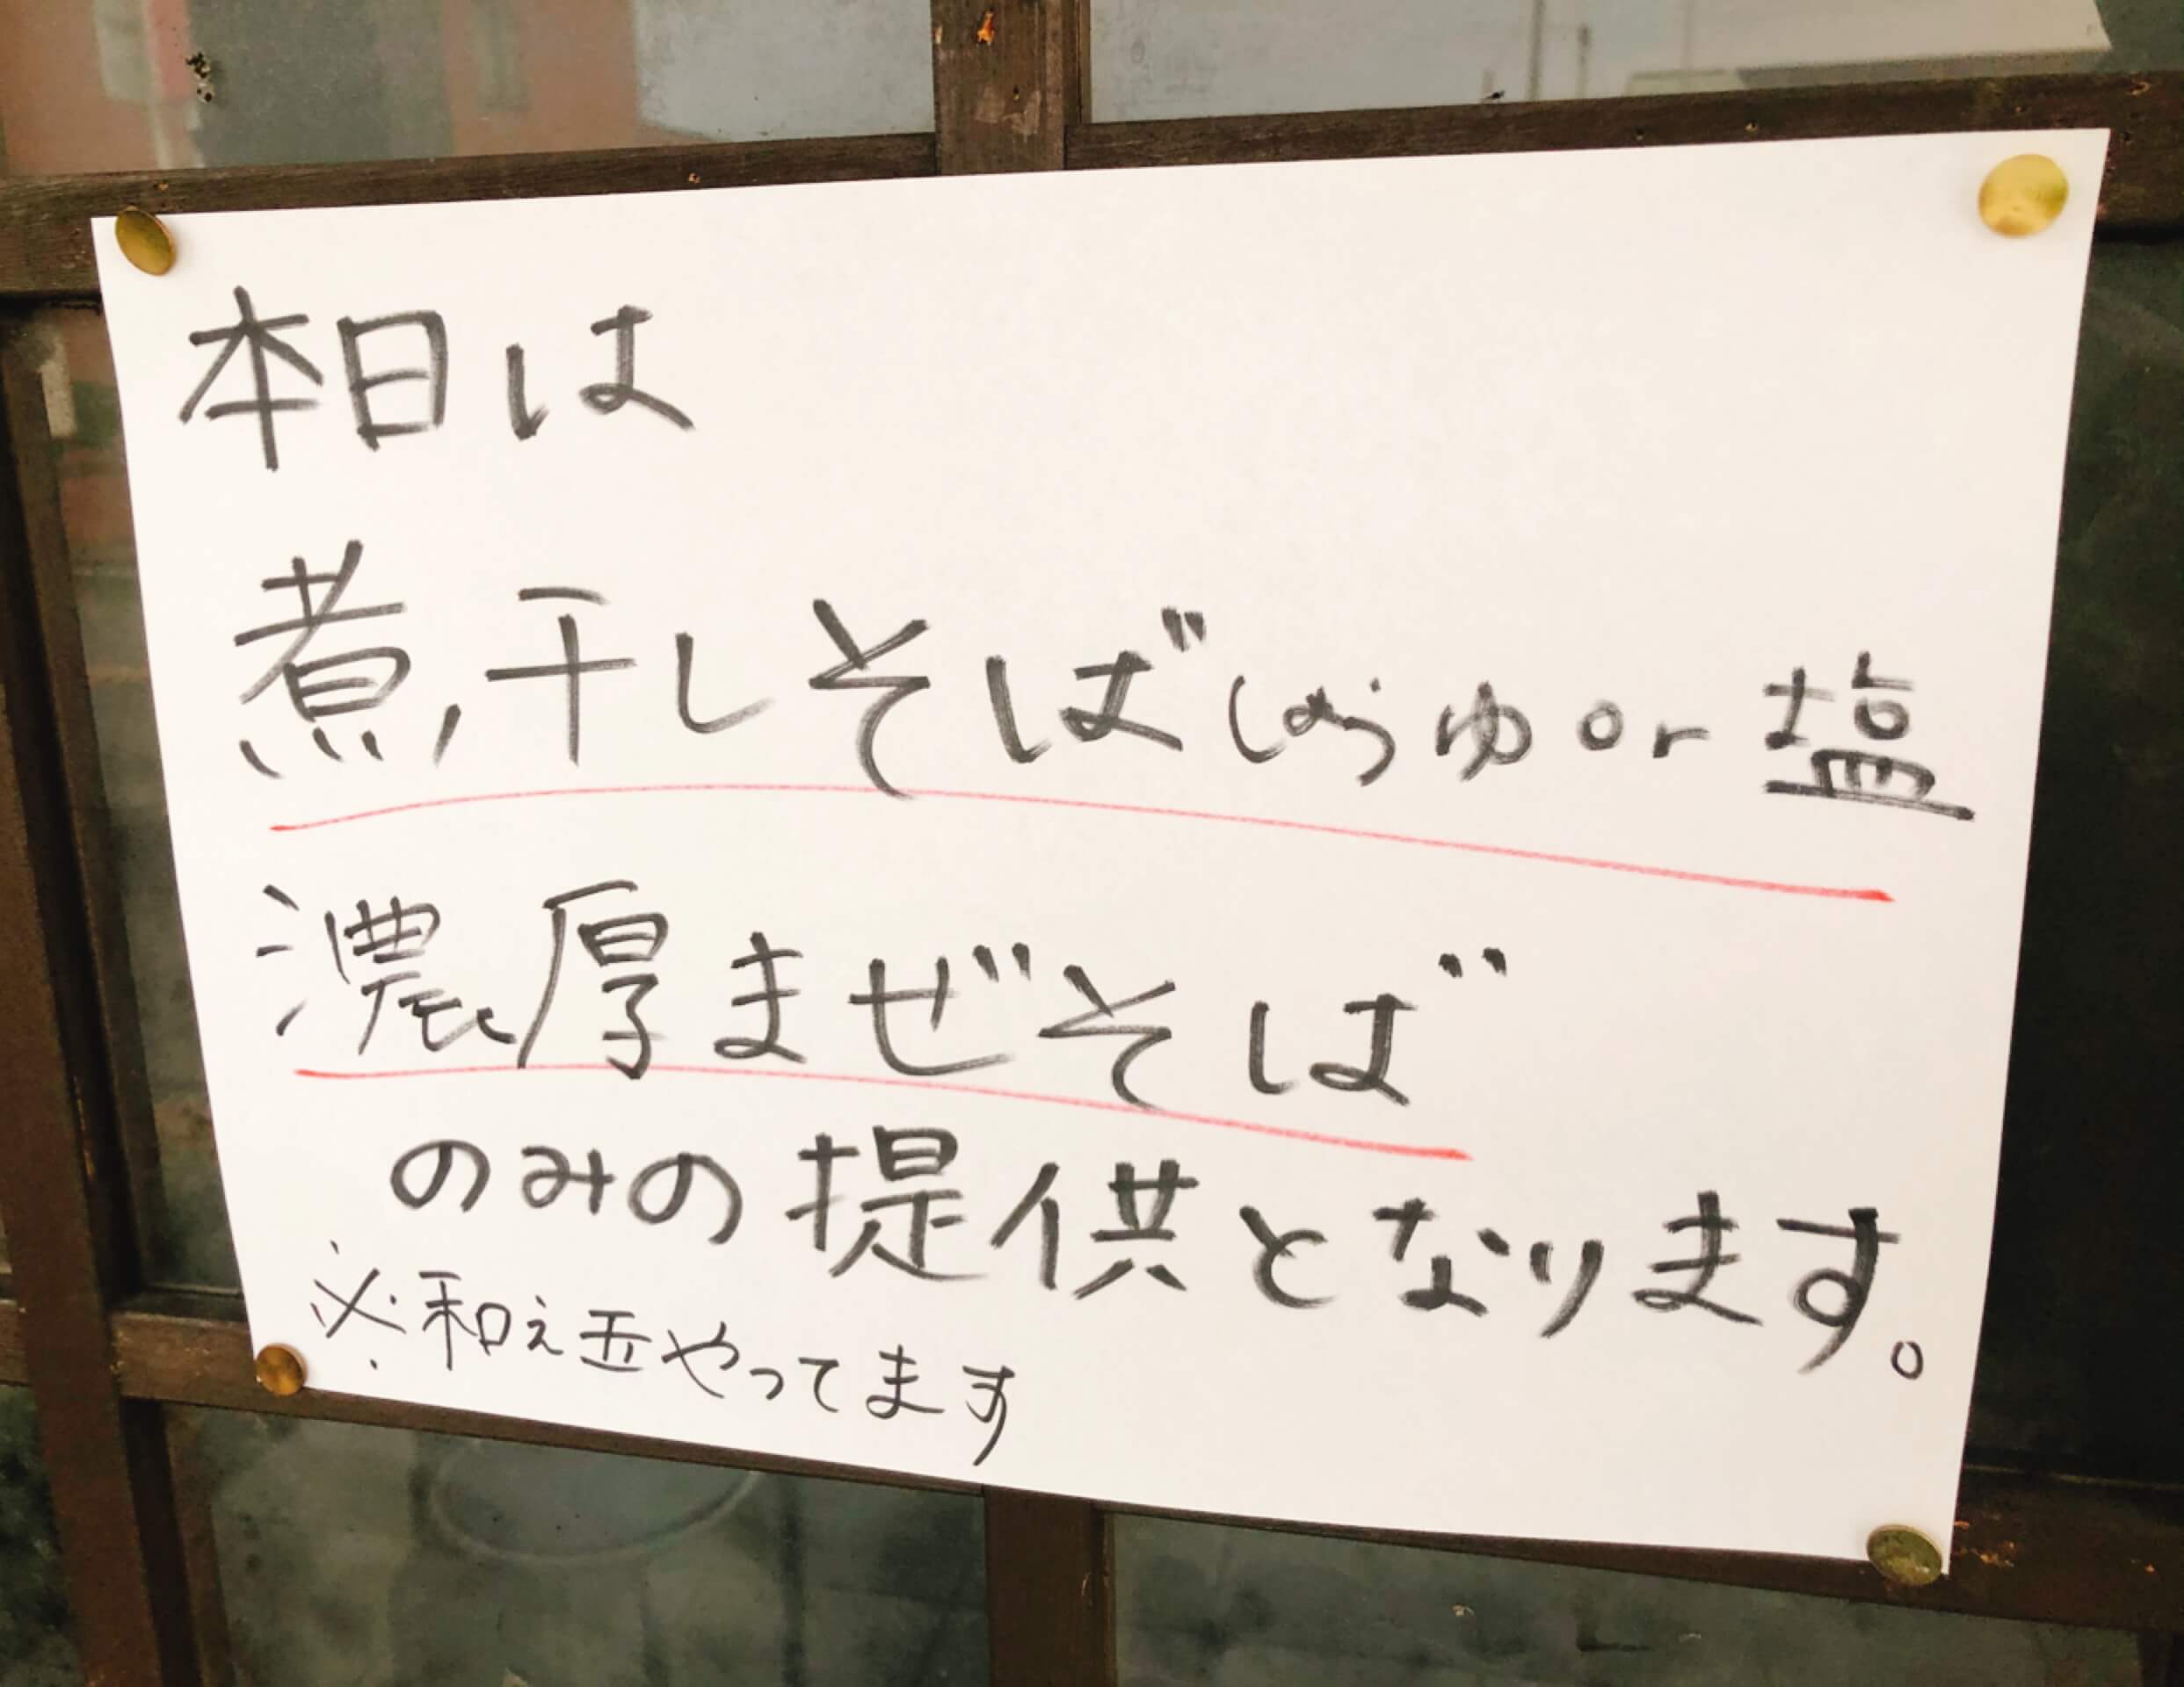 本日は
煮干しそばしょうゆor塩
濃厚まぜそば
のみの提供となります。
※和え玉やってます